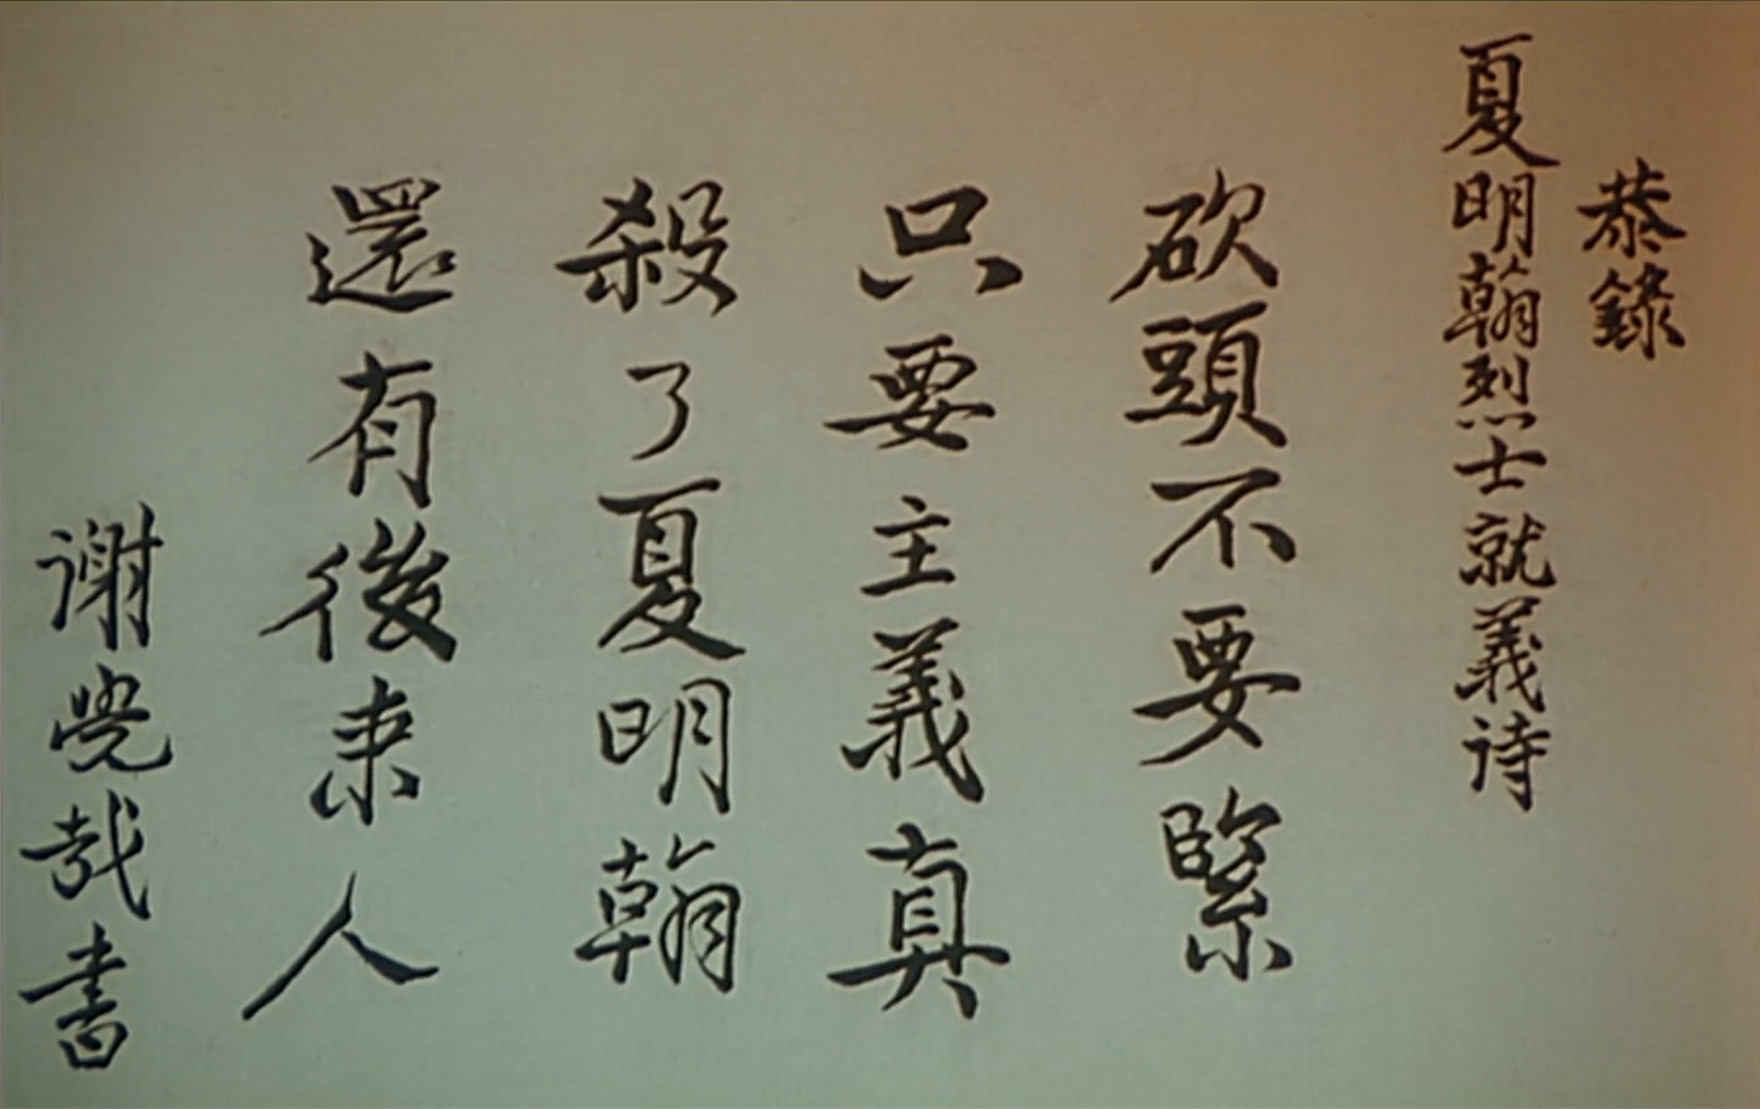 恭錄
夏明翰烈士就義诗
砍頭不要緊
只要主義真
殺了夏明翰
還有後来人
谢覺哉書